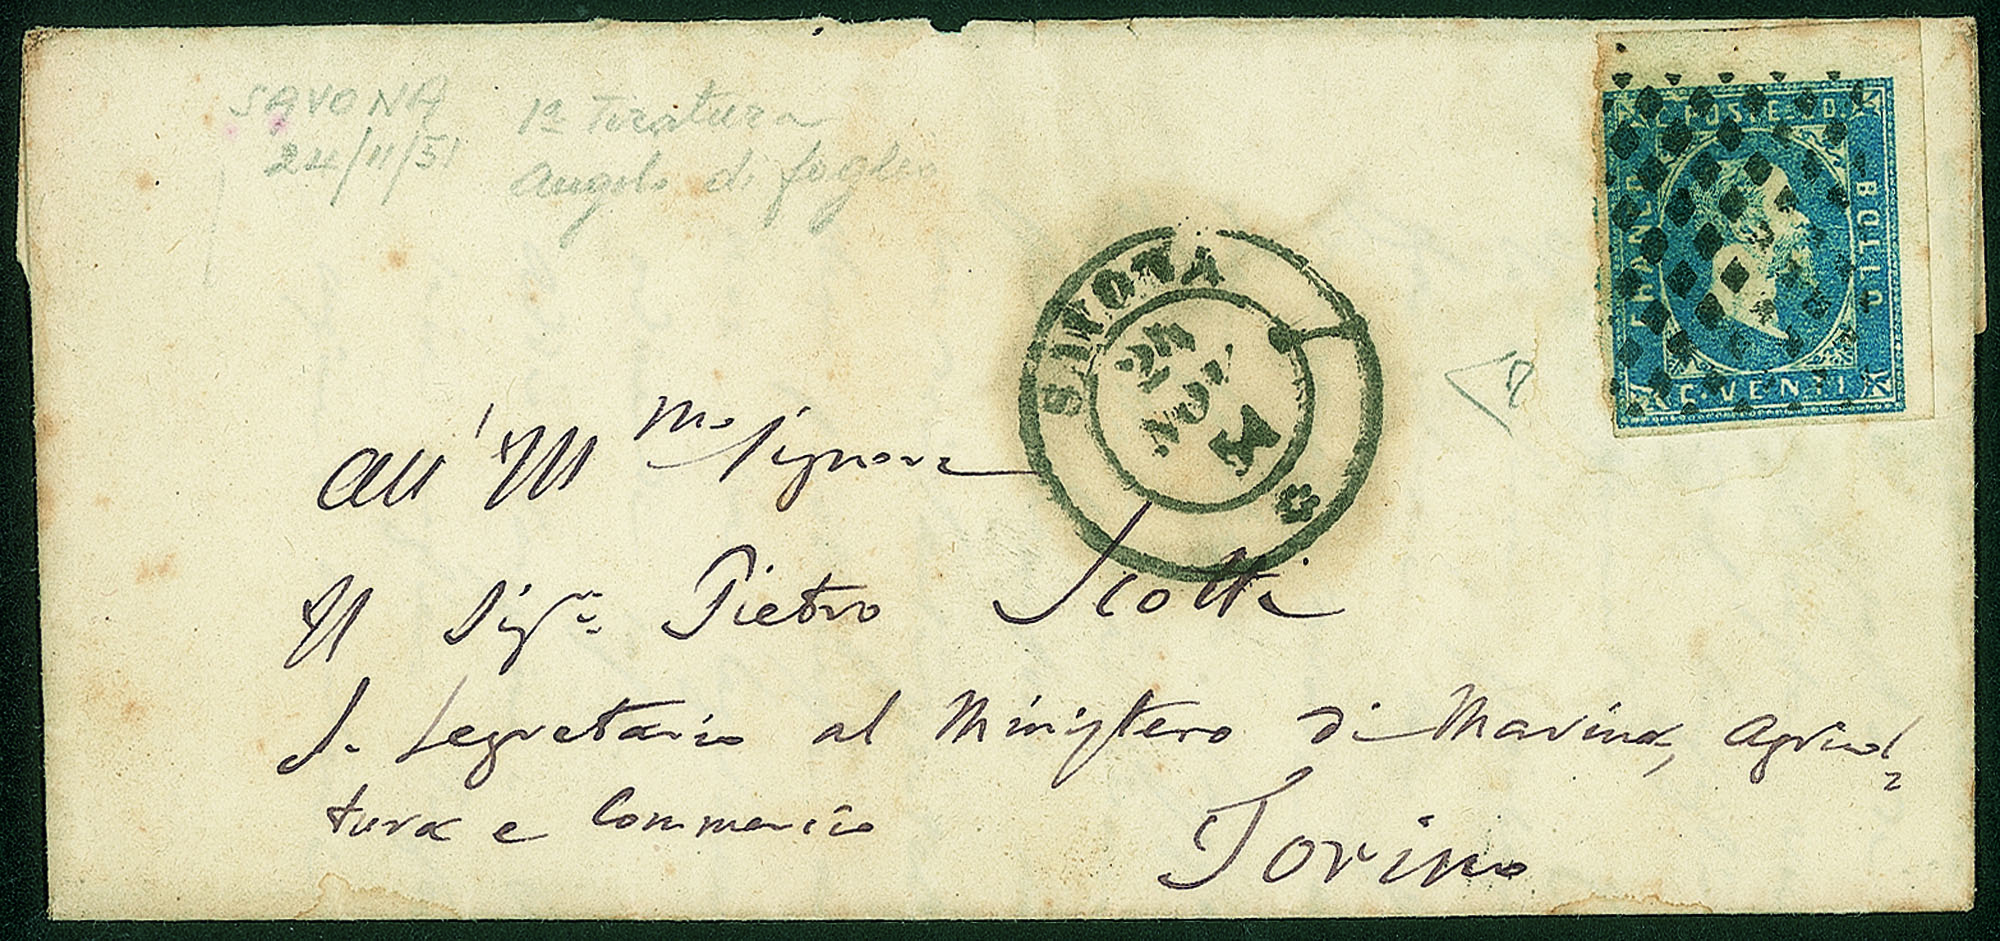 SAVONA
24/11/51
1a Tiratura
Angolo di foglio
C. POSTE
BOLLO
C. VENTI
FRANCO
SAVONA
24
NOV
51
All' Ill mo Signore
Il Sigr Pietro Scotti
S. Segretario al Ministero di Marina, Agricol
tura e Commercio
Torino